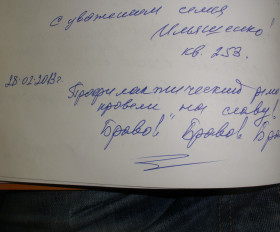 с уважением семья
Ильященко!
кв. 253.
28.02.2013г.
Профилактический рем
провели "на славу!
Браво! Браво! Бра